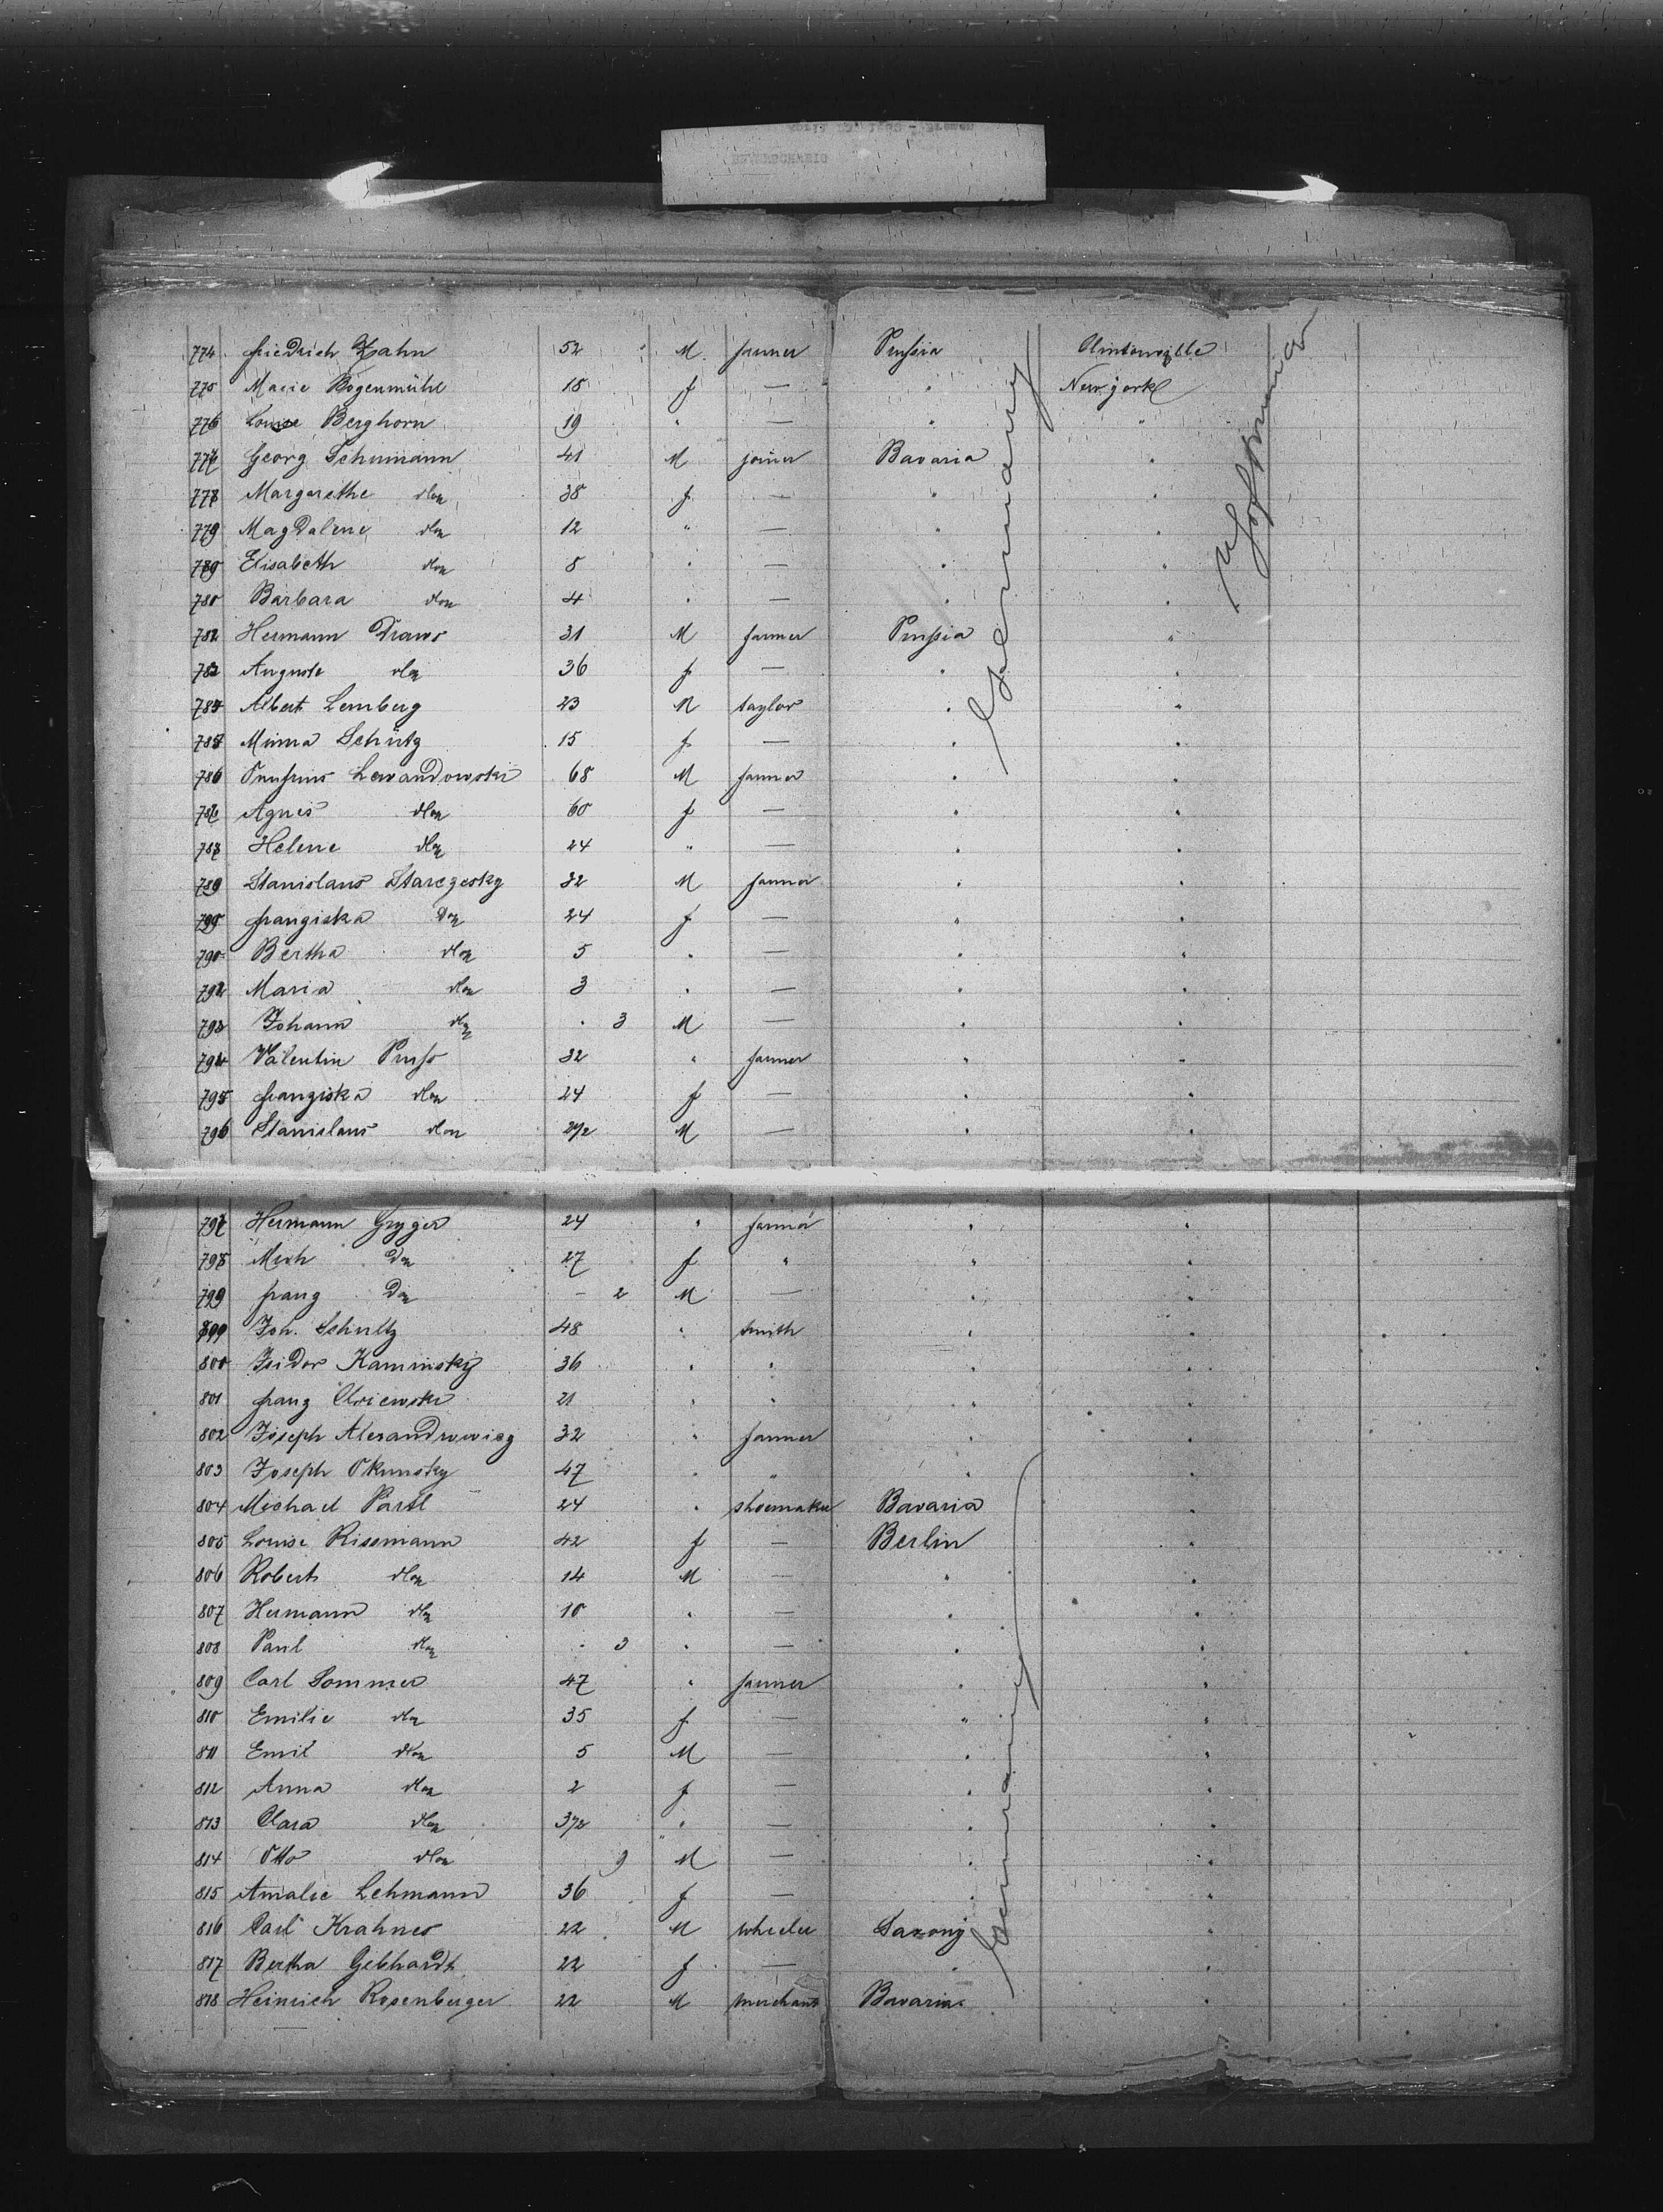 774 Friedrich Zahn 52 M. farmer Prussia Clintonville
775 Marie Bogenmühl 18 f — " New york
776 Louise Berghorn 19 " — " "
777 Georg Schumann 41 M joiner Bavaria "
778 Margarethe don 38 f — " "
779 Magdalene don 12 " — " "
Elisabeth don 8 " — " "
Barbara don 4 " — " "
Hermann Draws 31 M farmer Prussia "
Auguste don 36 f — " "
Albert Lemberg 23 M taylor " "
Minna Schütz 15 f — " "
786 Lewandowski 68 M farmer " "
Agnes don 60 f — " "
Helene don 24 " — " "
789 Stanislaus Starczesky 32 M farmer " "
Franziska don 24 f — " "
Bertha don 5 " — " "
Maria don 3 " — " "
Johann don " 3 M — " "
Valentin Pruss 32 " farmer " "
795 Franziska don 24 f — " "
796 Stanislaus don 2 1/2 M — " "
797 Hermann Gryger 24 " farmer " "
798 Mich don 27 f " " "
799 Franz don - 2 M — " "
Joh. Schultz 48 " smith " "
800 Isidor Kaminsky 36 " " " "
801 Franz 21 " " " "
802 Joseph Alexandrowicz 32 " farmer " "
803 Joseph Okunsky 47 " " " "
804 Michael Partl 24 " shoemaker Bavaria "
805 Louise Rissmann 42 f — Berlin "
806 Robert don 14 M — " "
807 Hermann don 10 " — " "
808 Paul don " 3 " — " "
809 Carl Sommer 47 " farmer " "
810 Emilie don 35 f — " "
811 Emil don 5 M — " "
812 Anna don 2 f — " "
813 Clara don 3 1/2 " — " "
814 Otto don 9 M — " "
815 Amalie Lehmann 36 f — " "
816 Carl Krahner 22 M wheeler Saxony "
817 Bertha Gebhardt 22 f — " "
818 Heinrich Rosenberger 22 M merchant Bavaria "
Germany
Germany